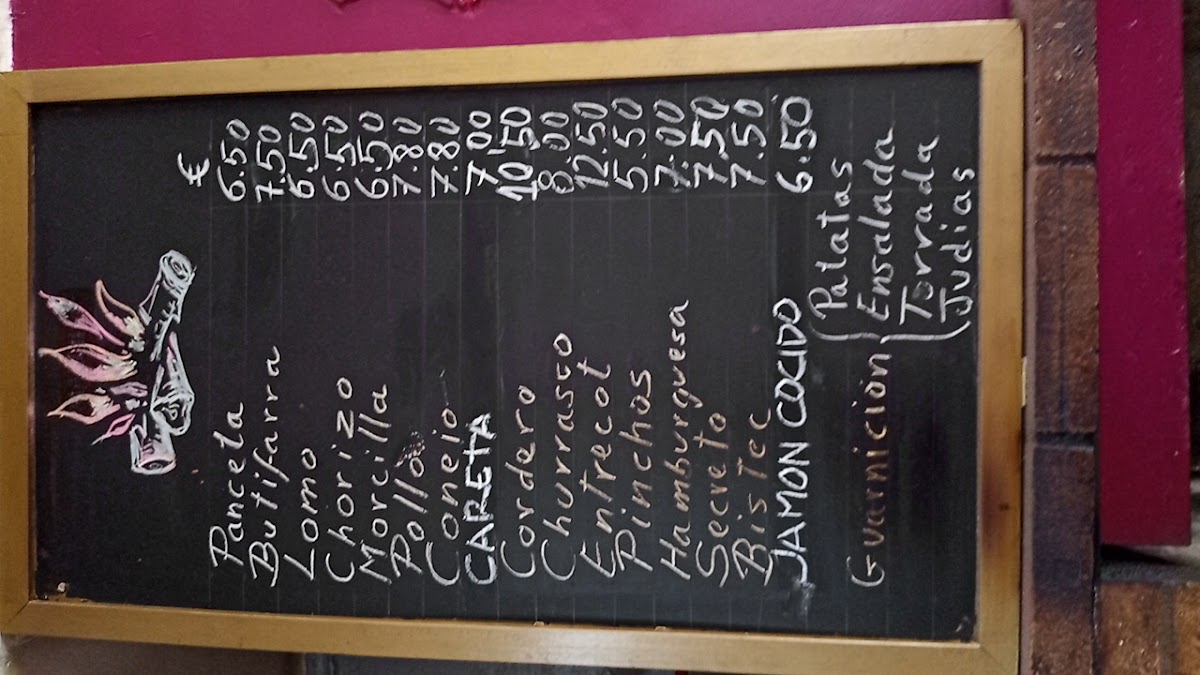 €
Panceta 6.50
Butifarra 7.50
Lomo 6.50
Chorizo 6.50
Morcilla 6.50
Pollo 7.80
Conejo 7.80
CARETA 7'00
Cordero 10'50
Churrasco 8.00
Entrecot 12.50
Pinchos 5.50
Hamburguesa 7.00
Secreto 7.50
Bistec 7.50
JAMON COCIDO 6.50
Patatas
Guarnicion Ensalada
Torrada
Judias